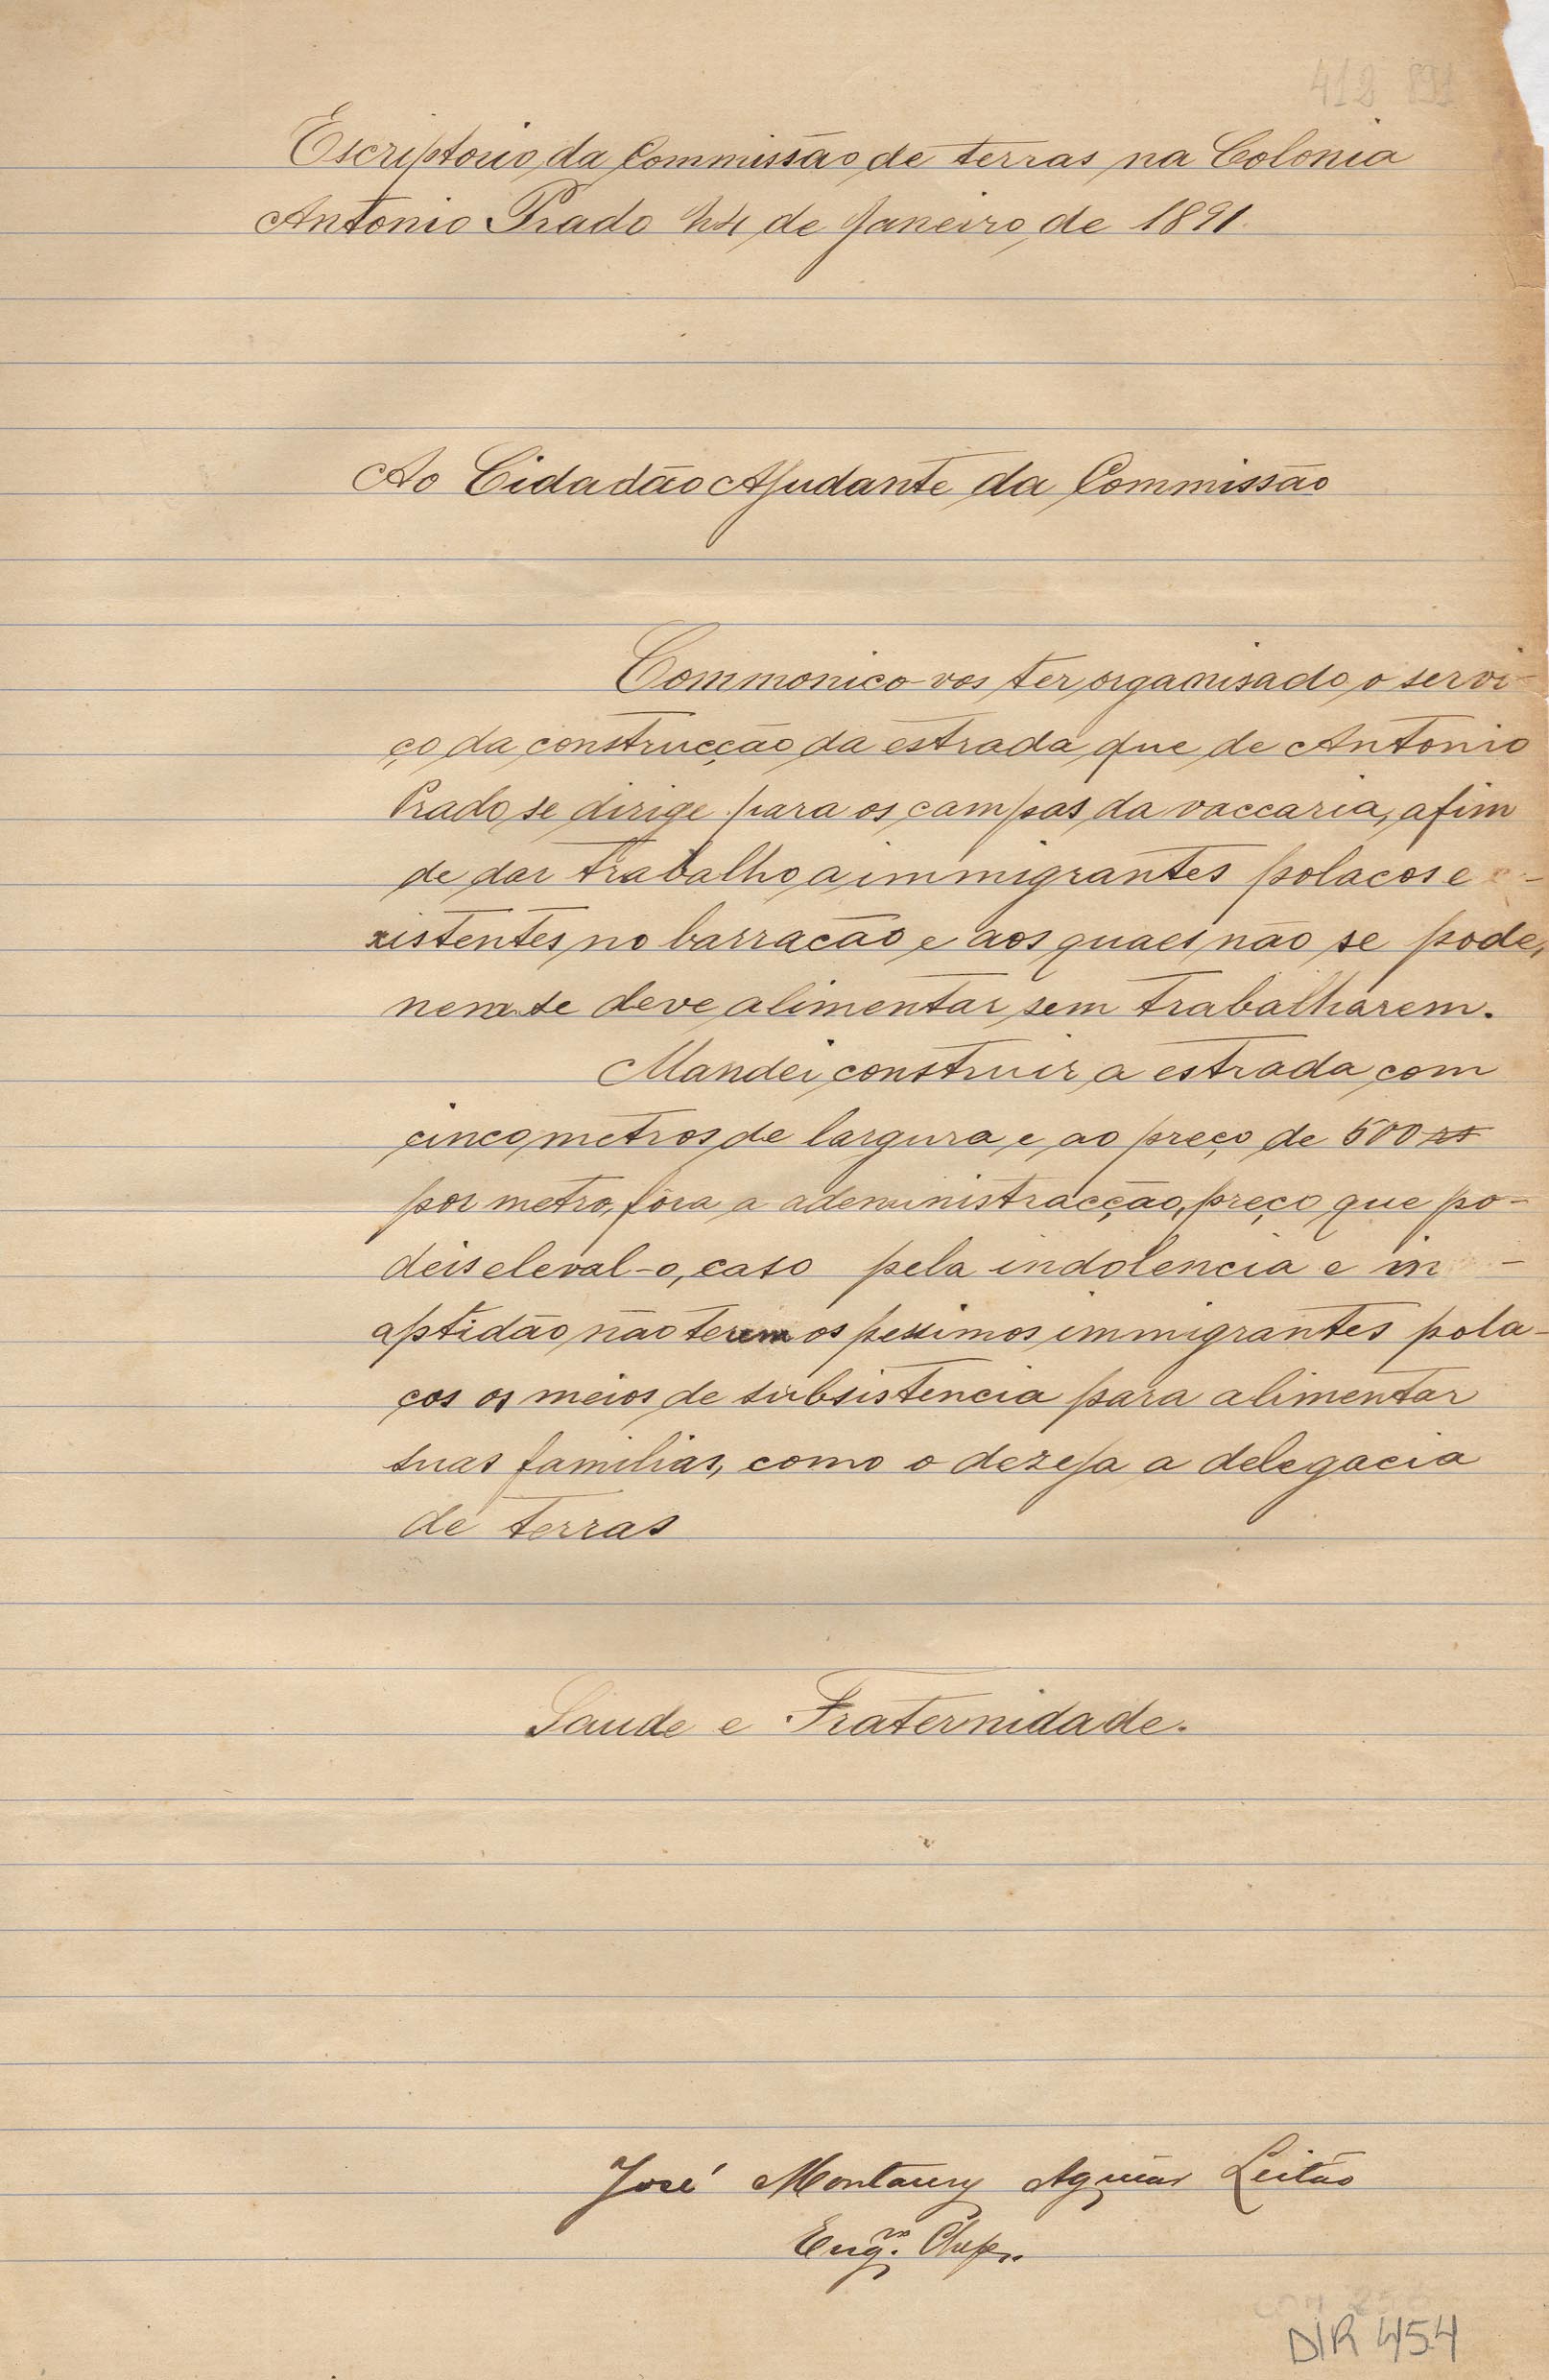 412 891
Escriptorio da Commissão de terras na Colonia
Antonio Prado 24 de Janeiro de 1891
Ao Cidadão Ajudante da Commissão
Commonico-vos ter organisado o servi-
ço da construcção da estrada que de Antonio
Prado se dirige para os campos da vaccaria, afim
de dar trabalho a immigrantes polacos e-
xistentes no barracão e aos quaes não se pode,
nem se deve alimentar sem trabalharem.
Mandei construir a estrada com
cinco metros de largura e ao preço de 500 rs
por metro, fóra a adeministracção, preço que po-
deis eleval-o, caso pela indolencia e in-
aptidão não terem os pessimos immigrantes pola-
cos os meios de subsistencia para alimentar
suas familias, como o dezeja a delegacia
de terras
Saude e Fraternidade.
José Montaury Aguiar Leitão
Engro. Chefe.
DIR 454